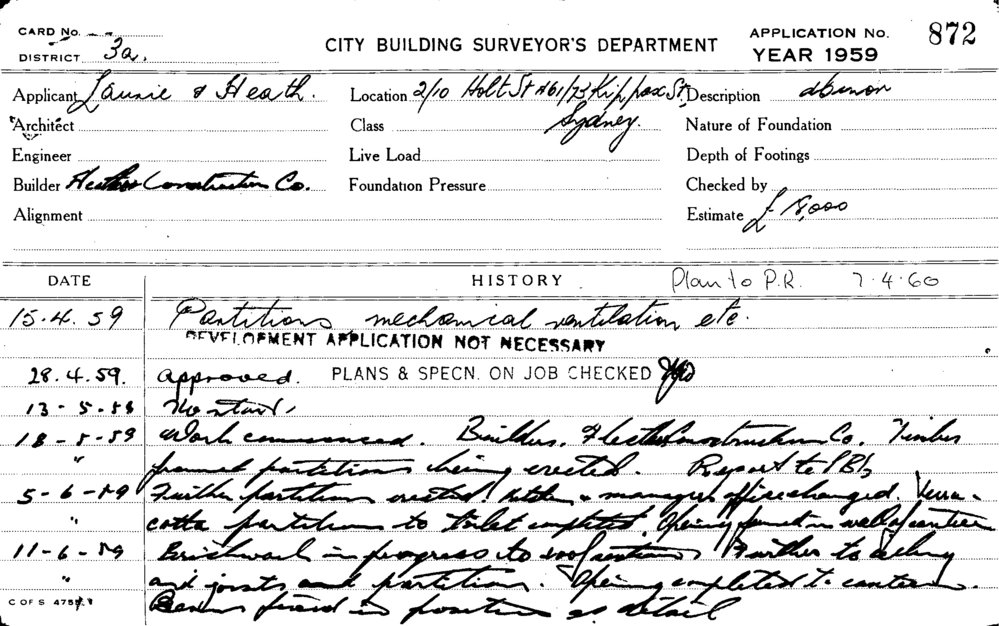 CARD No.
DISTRICT 3a.
CITY BUILDING SURVEYOR'S DEPARTMENT
APPLICATION No. 872
YEAR 1959
Applicant Laurie & Heath. Location 2/10 Holt St & 61/73 Kippax St. Description
Sydney.
Architect Class Nature of Foundation
Engineer Live Load Depth of Footings
Builder Construction Co. Foundation Pressure Checked by
Alignment Estimate £ 18,000
DATE HISTORY Plan to P.R. 7.4.60
15.4.59 Partitions mechanical ventilation etc.
DEVELOPMENT APPLICATION NOT NECESSARY
28.4.59. Approved. PLANS & SPECN. ON JOB CHECKED
13-5-59 No start.
18-5-59 Work commenced. Builders. Construction Co. Timber
" framed partitions being erected. Report to
5-6-59 Further partitions erected & managers office changed. Terra-
" cotta partitions to toilet completed. Opening formed in wall of canteen
11-6-59 Brickwork in progress to Further to ceiling
" and joists and partitions. Opening completed to canteen.
C OF S Beam fixed in position as detail